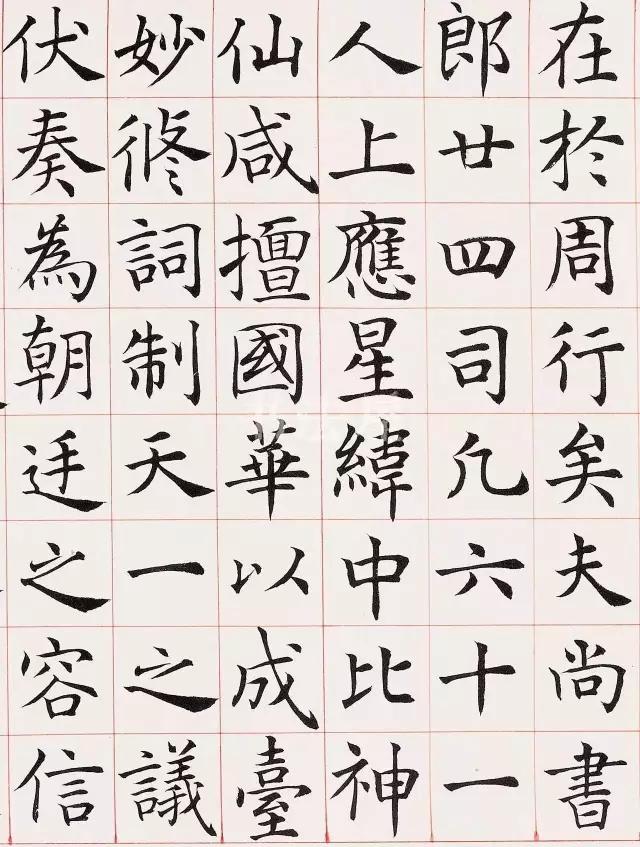 在於周行矣夫尚書
郎廿四司凡六十一
人上應星緯中比神
仙咸擅國華以成臺
妙修詞制天一之議
伏奏為朝廷之容信